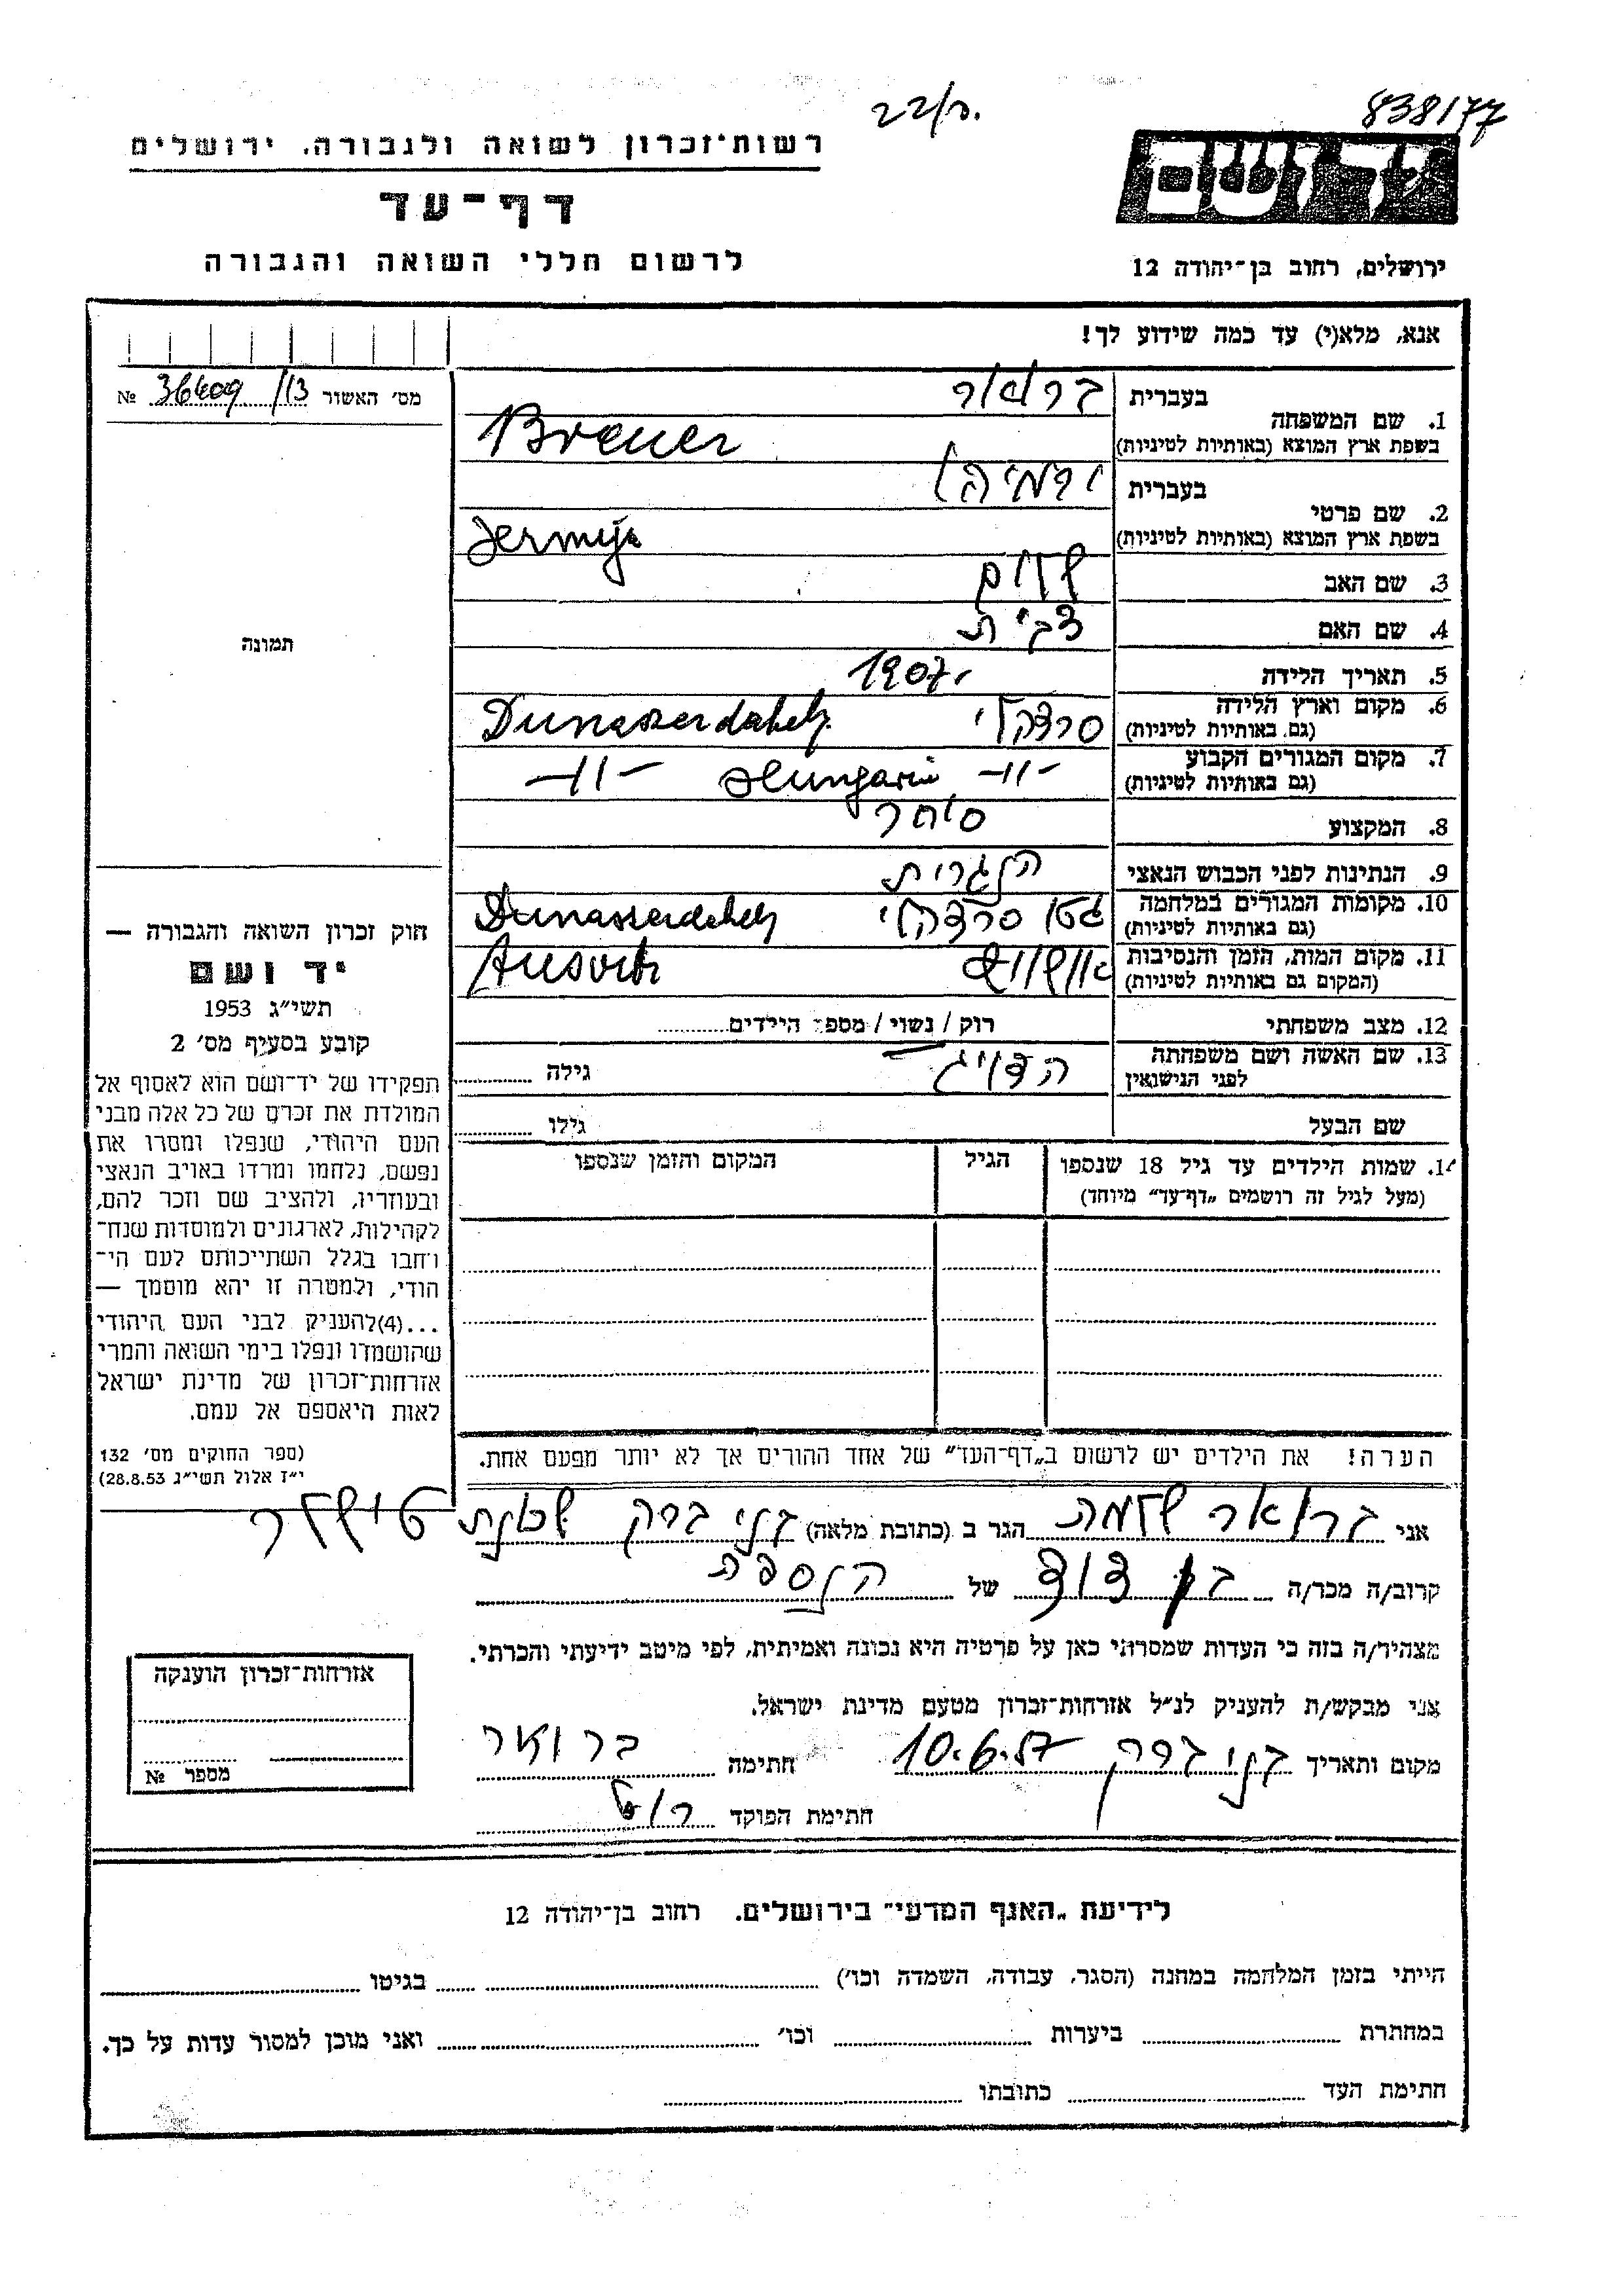 22/ח.
838/77
רשות־זכרון לשואה ולגבורה, ירושלים
דף־עד
לרשום חללי השואה והגבורה
יד ושם
ירושלים, רחוב בן־יהודה 12
אנא, מלא(י) עד כמה שידוע לך!
מס׳ האשור 36409 /13 №
תמונה
בעברית ברואר
1. שם המשפחה
בשפת ארץ המוצא (באותיות לטיניות) Breuer
בעברית ירמיהו
2. שם פרטי
בשפת ארץ המוצא (באותיות לטיניות) Jermija
3. שם האב שלום
4. שם האם
5. תאריך הלידה 1907.
6. מקום וארץ הלידה סרדהלי Dunaszerdahely
(גם באותיות לטיניות)
7. מקום המגורים הקבוע -11- Hungaria -11-
(גם באותיות לטיניות)
8. המקצוע סוחר
9. הנתינות לפני הכבוש הנאצי הונגרית
10. מקומות המגורים במלחמה גטו סרדהלי Dunaszerdahely
(גם באותיות לטיניות)
11. מקום המות, הזמן והנסיבות אושוויץ Ausvitz
(המקום גם באותיות לטיניות)
12. מצב משפחתי רוק / נשוי / מספר הילדים
13. שם האשה ושם משפחתה הדויג גילה
לפני הנישואין
שם הבעל גילו
14. שמות הילדים עד גיל 18 שנספו הגיל המקום והזמן שנספו
(מעל לגיל זה רושמים „דף־עד” מיוחד)
הערה! את הילדים יש לרשום ב„דף־העד” של אחד ההורים אך לא יותר מפעם אחת.
חוק זכרון השואה והגבורה —
יד ושם
תשי״ג 1953
קובע בסעיף מס׳ 2
תפקידו של יד־ושם הוא לאסוף אל
המולדת את זכרם של כל אלה מבני
העם היהודי, שנפלו ומסרו את
נפשם, נלחמו ומרדו באויב הנאצי
ובעוזריו, ולהציב שם וזכר להם,
לקהילות, לארגונים ולמוסדות שנח־
רבו בגלל השתייכותם לעם הי־
הודי, ולמטרה זו יהא מוסמך —
...(4)להעניק לבני העם היהודי
שהושמדו ונפלו בימי השואה והמרי
אזרחות־זכרון של מדינת ישראל
לאות היאספם אל עמם.
(ספר החוקים מס׳ 132
י״ז אלול תשי״ג 28.8.53)
אני ברואר שלמה הגר ב (כתובת מלאה) בני ברק שכונת טישלר
קרוב/ה מכר/ה בן דוד של הנספה
מצהיר/ה בזה כי העדות שמסרתי כאן על פרטיה היא נכונה ואמיתית, לפי מיטב ידיעתי והכרתי.
אני מבקש/ת להעניק לנ״ל אזרחות־זכרון מטעם מדינת ישראל.
מקום ותאריך בני ברק 10.6.57 חתימה ברואר
חתימת הפוקד
אזרחות־זכרון הוענקה
מספר №
לידיעת „האגף המדעי” בירושלים. רחוב בן־יהודה 12
הייתי בזמן המלחמה במחנה (הסגר, עבודה, השמדה וכו׳) בגיטו
במחתרת ביערות וכו׳ ואני מוכן למסור עדות על כך.
חתימת העד כתובתו